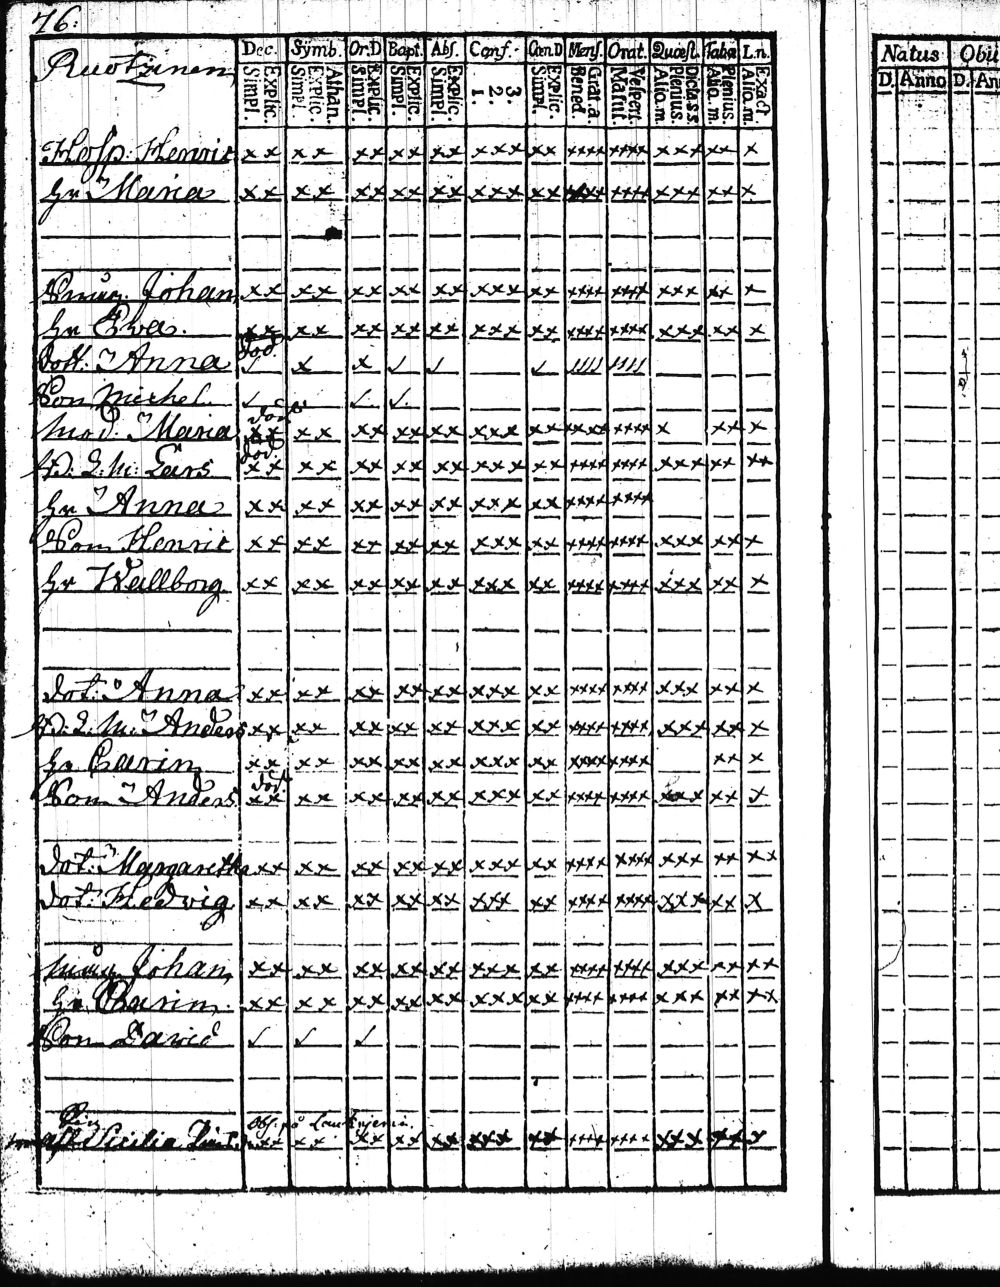 76:
Dec. Sÿmb. Or:D Bapt. Abs. Conf. Cœn.D Mens. Orat. Quæst. Tabæ L.n. Natus Obii
Ruotzinen Simpl. Explic. Simpl. Explic. Athan. Simpl. Explic. Simpl. Explic. Simpl. Explic. 1. 2. 3. Simpl. Explic. Bened. Grat.a. Matut. Vesper. Alio.m. Plenius. Dicta S.S. Alio.m. Plenius. Alio.m. Exact D. Anno D. An
Hosp: Henric x x x x x x x x x x x x x x x x x x x x x x x x x x x x x
hr Maria x x x x x x x x x x x x x x x x x x x x x x x x x x x x x
Småg. Johan x x x x x x x x x x x x x x x x x x x x x x x x x x x x x
hr Eva. x x x x x x x x x x x x x x x x x x x x x x x x x x x x x
död.
Dott: Anna ✓ x x ✓ ✓ ✓ //// ////
Son Michel. ✓ ✓ ✓
död
Mod. Maria x x x x x x x x x x x x x x x x x x x x x x x x x x x
död
Lars x x x x x x x x x x x x x x x x x x x x x x x x x x x x x x
hr Anna x x x x x x x x x x x x x x x x x x x x x x x
Son Henric x x x x x x x x x x x x x x x x x x x x x x x x x x x x x
hr Wallborg x x x x x x x x x x x x x x x x x x x x x x x x x x x x x
dot: Anna x x x x x x x x x x x x x x x x x x x x x x x x x x x x x
Anders x x x x x x x x x x x x x x x x x x x x x x x x x x x x x
hr Carin x x x x x x x x x x x x x x x x x x x x x x x x x x
död
Son Anders x x x x x x x x x x x x x x x x x x x x x x x x x x x x x
dot: Margaretha x x x x x x x x x x x x x x x x x x x x x x x x x x x x x x
dot: Hedvig x x x x x x x x x x x x x x x x x x x x x x x x x x x x x
måg Johan x x x x x x x x x x x x x x x x x x x x x x x x x x x x x x
hr Carin x x x x x x x x x x x x x x x x x x x x x x x x x x x x x x
Son David ✓ ✓ ✓
Obs. på
Cicilia x x x x x x x x x x x x x x x x x x x x x x x x x x x x x